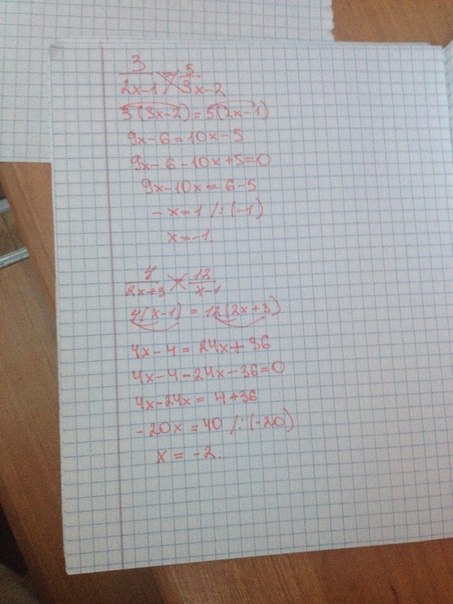 3/(2x-1) = 5/(3x-2)
3(3x-2)=5(2x-1)
9x-6=10x-5
9x-6-10x+5=0
9x-10x=6-5
-x=1 /:(-1)
x=-1.
4/(2x+3) = 12/(x-1)
4(x-1)=12(2x+3)
4x-4=24x+36
4x-4-24x-36=0
4x-24x=4+36
-20x=40 /:(-20)
x=-2.